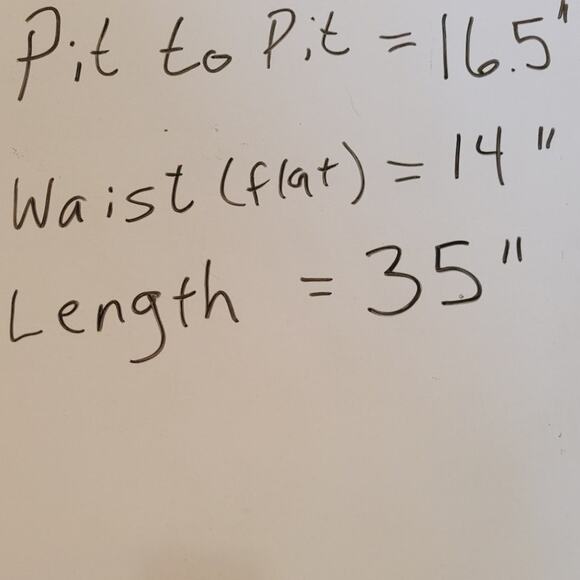 Pit to Pit = 16.5"
Waist (flat) = 14"
Length = 35"